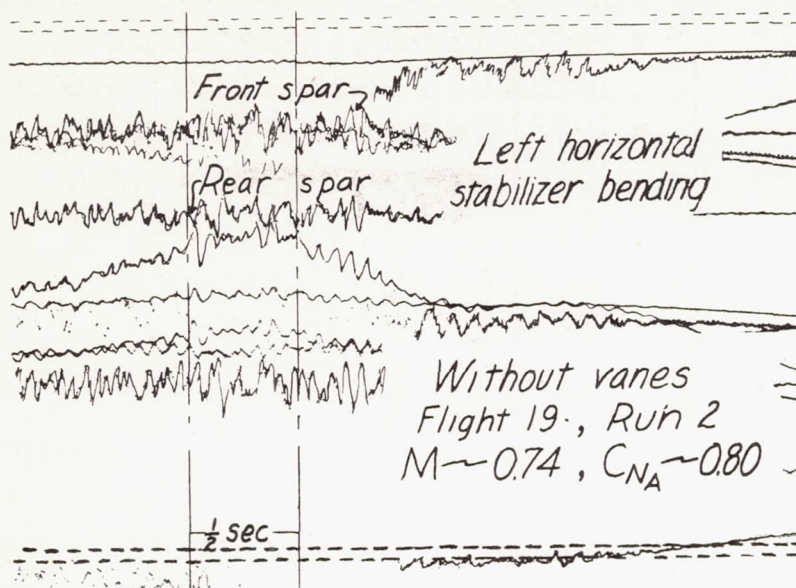 Front spar
Left horizontal
stabilizer bending
Rear spar
Without vanes
Flight 19., Run 2
M~0.74, C_NA~0.80
½ sec